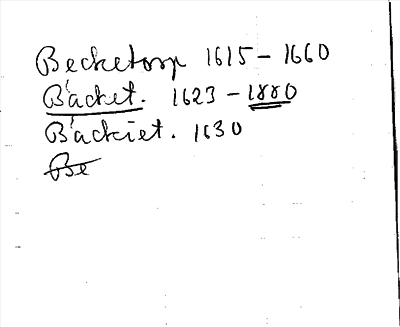 Becketorp 1615 - 1660
Bäcket. 1623 - 1880
Bäckiet. 1630
Be